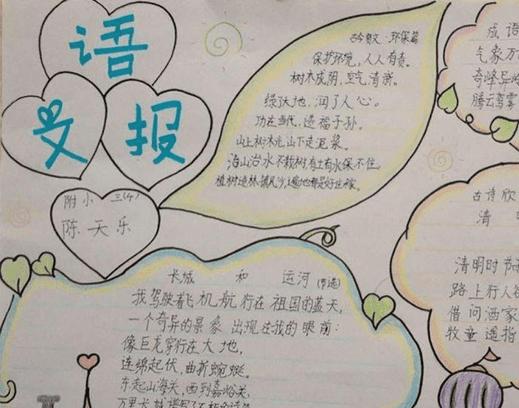 语
文
报
附小 三(4)
陈天乐
吟散文·环保篇
保护环境,人人有责。
树木成阴,空气清新。
绿沃地,润了人心。
功在当代,造福子孙。
山上树木光,山下走泥浆。
治山治水不栽树,有土有水保不住。
植树造林,遍地都是好庄稼。
成语
气象万
奇峰异
腾云驾雾
古诗欣
清
清明时节
路上行人
借问酒家
牧童遥指
长城 和 运河(节选)
我驾驶着飞机航行在祖国的蓝天,
一个奇异的景象出现在我的眼前:
像巨龙穿行在大地,
连绵起伏,曲折蜿蜒。
东起山海关,西到嘉峪关,
万里长